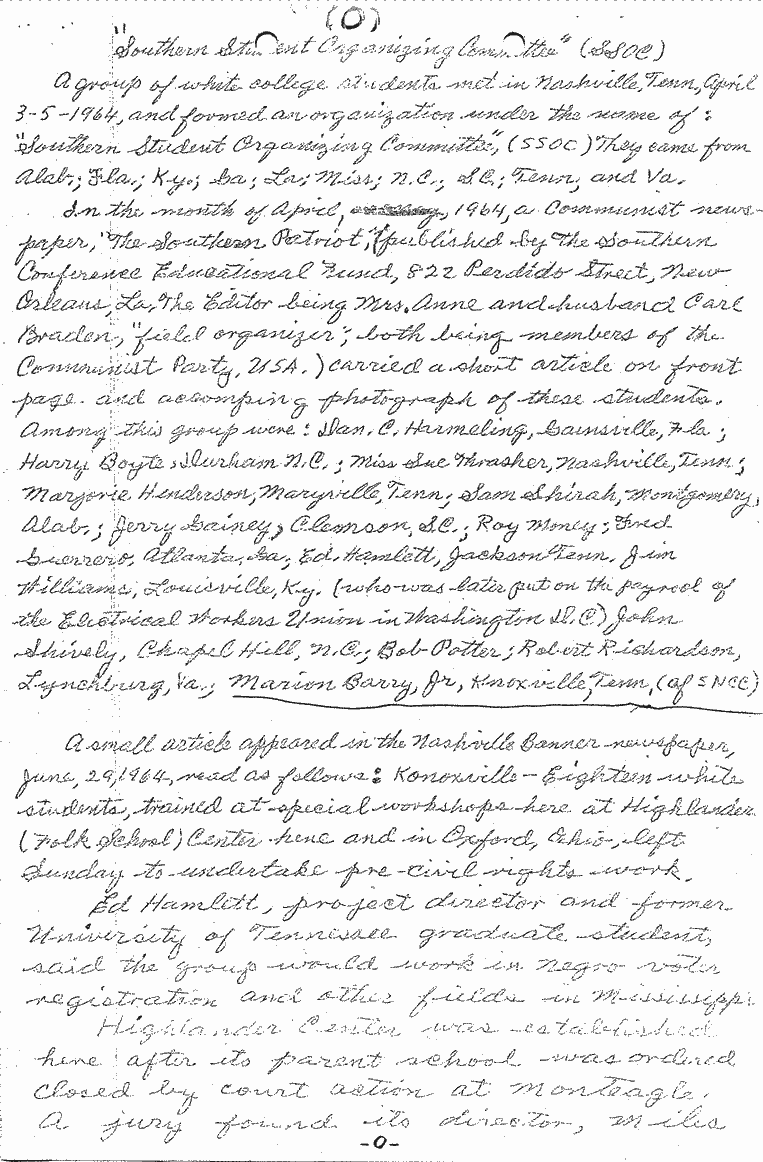 (O)
"Southern Student Organizing Committee" (SSOC)
A group of white college students met in Nashville, Tenn, April
3-5-1964, and formed an organization under the name of:
"Southern Student Organizing Committee", (SSOC) They came from
Alab.; Fla.; Ky.; Ga; La; Miss; N.C.; S.C.; Tenn; and Va.
In the month of April, 1964, a Communist news-
prper, "The Southern Patriot," (published by The Southern
Conference Educational Fund, 822 Perdido Street, New
Orleans, La, The Editor being Mrs. Anne and husband Carl
Braden, "field organizer"; both being members of the
Communist Party, USA.) carried a short article on front
page. and accomping photograph of these students.
Among this group were: Dan. C. Harmeling, Gainsville, Fla;
Harry Boyte, Durham N.C.; Miss Sue Thrasher, Nashville, Tenn;
Marjorie Henderson, Maryville, Tenn; Sam Shirah, Montgomery,
Alab.; Jerry Gainey, Clemson, S.C.; Roy Money; Fred
Guerrero, Atlanta, Ga; Ed. Hamlett, Jackson Tenn. Jim
Williams, Louisville, Ky. (who was later put on the payrool of
the Electrical Workers Union in Washington D.C) John
Shively, Chapel Hill, N.C.; Bob Potter; Robert Richardson,
Lynchburg, Va.; Marion Barry, Jr, Knoxville, Tenn, (of SNCC)
A small article appeared in the Nashville Banner newspaper,
June, 29, 1964, read as follows: Konoxville - Eighteen white
students, trained at special workshops here at Highlander
(Folk School) Center here and in Oxford, Ohio, left
Sunday to undertake pre-civil rights work.
Ed Hamlett, project director and former
University of Tennessee graduate student,
said the group would work in negro voter
registration and other fields in Mississippi.
Highlander Center was established
here after its parent school was ordered
closed by court action at Monteagle.
A jury found its director, Miles
-O-